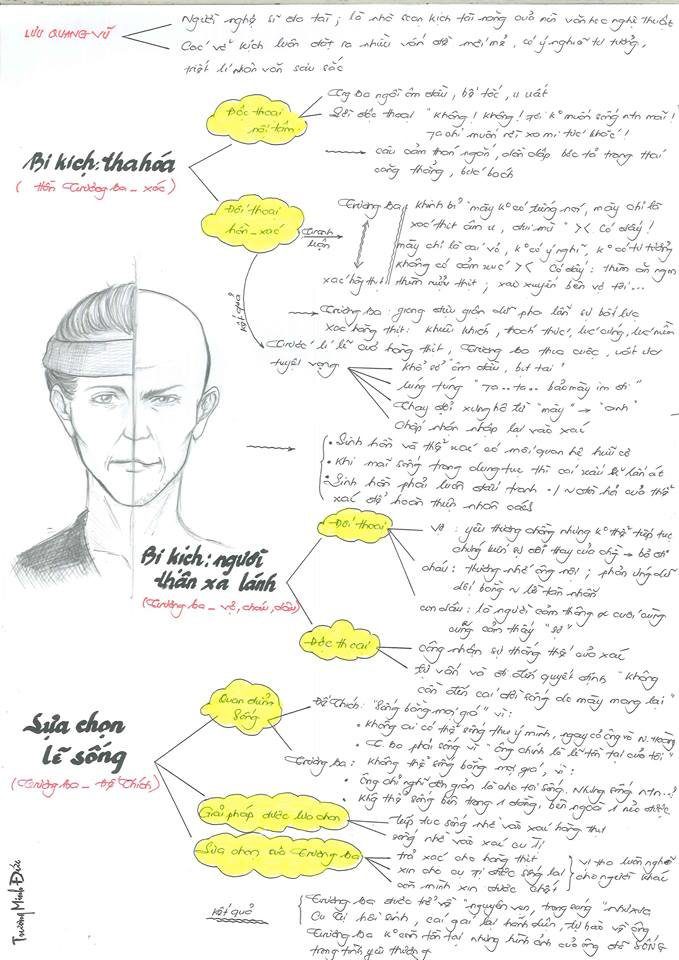 LƯU QUANG VŨ
Người nghệ sĩ đa tài; là nhà soạn kịch tài năng của nền văn học nghệ thuật
Các vở kịch luôn đặt ra nhiều vấn đề mới mẻ, có ý nghĩa tư tưởng,
triết lí nhân văn sâu sắc
Bi kịch: tha hóa
(Hồn Trương Ba – xác)
Độc thoại
nội tâm
Trg Ba ngồi ôm đầu, bế tắc, u uất
Lời độc thoại "không! không! Tôi k° muốn sống ntn mãi!
câu cảm thán ngắn, dồn dập bộc lộ trạng thái
căng thẳng, bức bách
Đối thoại
hồn - xác
Tranh
luận
Trương Ba
khinh bỉ "mày k° có tiếng nói, mày chỉ là
xác thịt âm u, đui mù" >< Có đấy!
mày chỉ là cái vỏ, k° có ý nghĩ, k° có tư tưởng
không có cảm xúc >< Có đấy: thèm ăn ngon
xác hàng thịt
thèm rượu thịt; xao xuyến bên vợ tôi...
kết quả
Trương Ba: giọng
xác hàng thịt: khuấy khích, thách thức,
Trước lí lẽ của hàng thịt, Trương Ba thua cuộc,
tuyệt vọng
khổ sở ôm đầu, bịt tai!
lúng túng "Ta..ta.. bảo mày im đi"
Thay đổi xưng hô từ "mày" → "anh"
Chấp nhận nhập lại vào xác
• Linh hồn và thể xác có mối quan hệ hữu cơ
• Khi mãi sống trong dung tục thì cái xấu sẽ lấn át
• Linh hồn phải luôn đấu tranh
xác để hoàn thiện nhân cách
Bi kịch: người
thân xa lánh
(Trương Ba – vợ, cháu, dâu)
Đối thoại
Vợ: yêu thương chồng nhưng k° thể tiếp tục
chứng kiến sự đổi thay của chồng → bỏ đi
cháu: thương nhớ ông nội; phản ứng dữ
dội bằng
con dâu: là người cảm thông
cũng cảm thấy "sợ"
Độc thoại
công nhận sự thắng thế của xác
tự vấn và đi đến quyết định "không
cần đến cái đời sống do mày mang lại"
Lựa chọn
lẽ sống
(Trương Ba – Đế Thích)
Quan điểm
sống
Đế Thích: "sống bằng mọi giá" vì:
• không ai có thể sống như ý mình, ngay cả ông và N. Hoàng
• T. Ba phải sống vì "ông chính là lẽ tồn tại của tôi"
Trương Ba: không thể sống bằng mọi giá, vì:
• ông chỉ nghĩ đơn giản là cho tôi sống. Nhưng sống ntn..?
• khg thể sống bên trong 1 đằng, bên ngoài 1 nẻo được
Giải pháp được lựa chọn
tiếp tục sống nhờ vào xác hàng thịt
sống nhờ vào xác cu Tị
Lựa chọn của Trương Ba
trả xác cho hàng thịt
xin cho cu Tị được sống lại
còn mình xin được chết
vị tha luôn nghĩ
cho người khác
kết quả
Trương Ba được trở về "nguyên vẹn, trong sạch" như xưa
Cu Tị hồi sinh, cái gái lại
Trương Ba k° còn tồn tại nhưng hình ảnh của ông để SỐNG
trong tình yêu thương
Trương Minh Đức